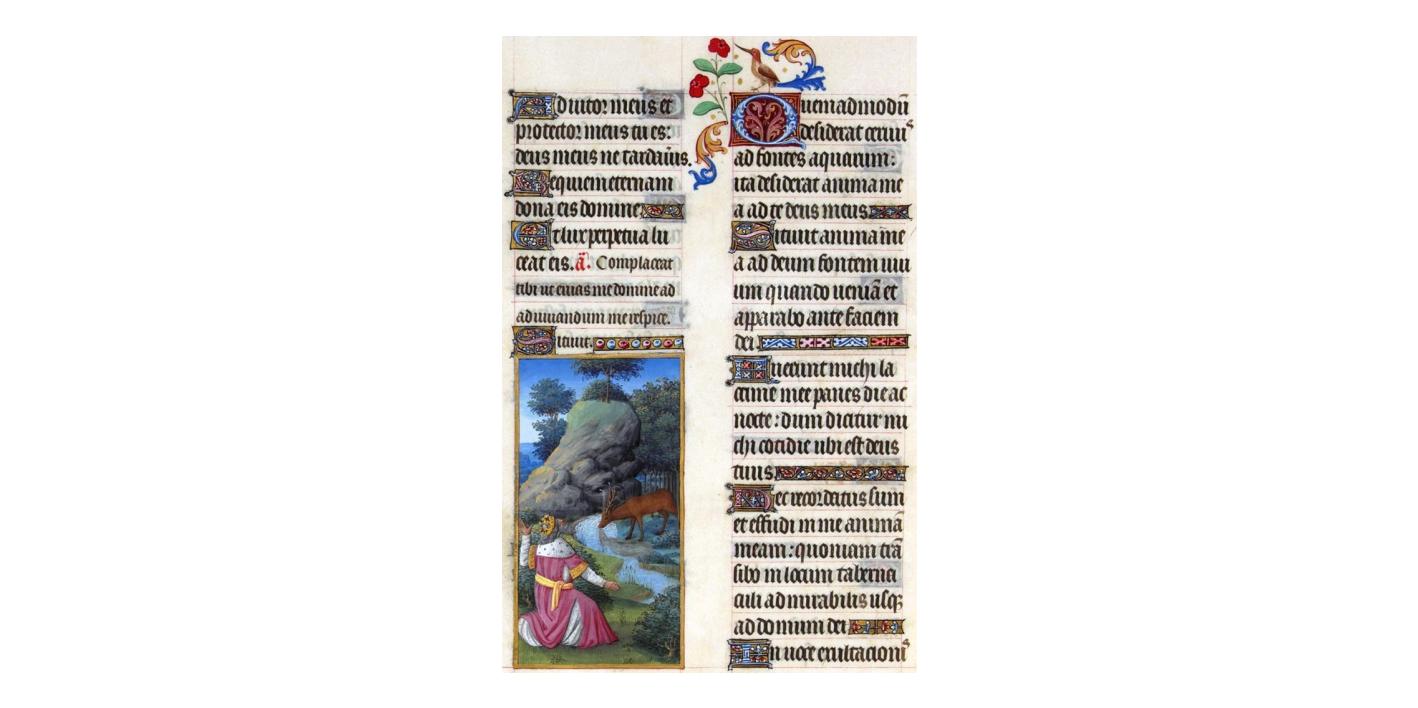 Adiutor meus et
protector meus tu es:
deus meus ne tardaūs.
Requiem eternam
dona eis domine
Et lux perpetua lu
ceat eis. ā. Complaceat
tibi ut eruas me domine ad
adiuuandum me respice.
Sitiuit.
Quemadmodū
desiderat ceruus
ad fontes aquarum:
ita desiderat anima me
a ad te deus meus
Sitiuit anima me
a ad deum fontem uiu
um quando ueniā et
apparabo ante faciem
dei.
Fuerunt michi la
crime mee panes die ac
nocte: dum dicitur mi
chi cotidie ubi est deus
tuus
Hec recordatus sum
et effudi in me animā
meam: quoniam trā
sibo in locum taberna
culi admirabilis usqȝ
ad domum dei
In uoce exultacionis